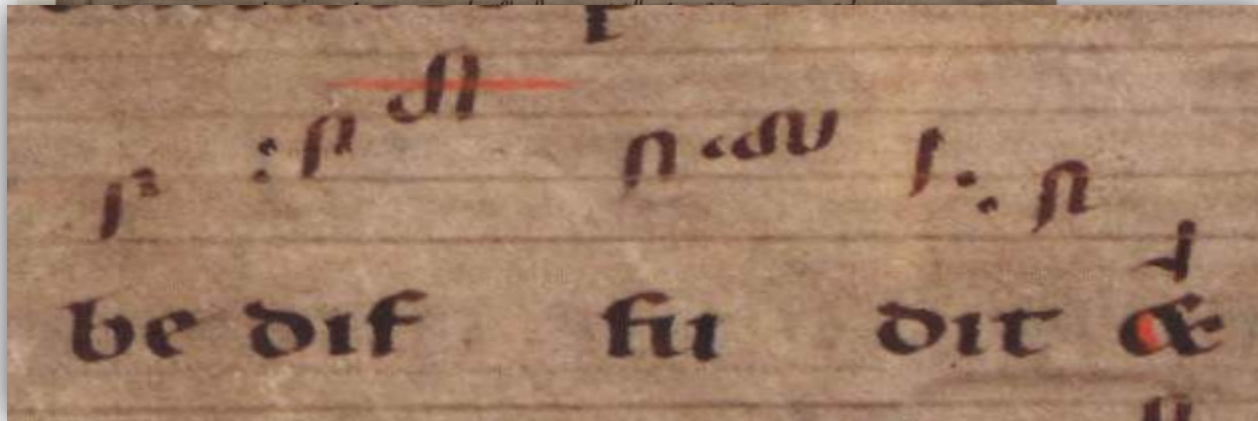 be dif fu dit &